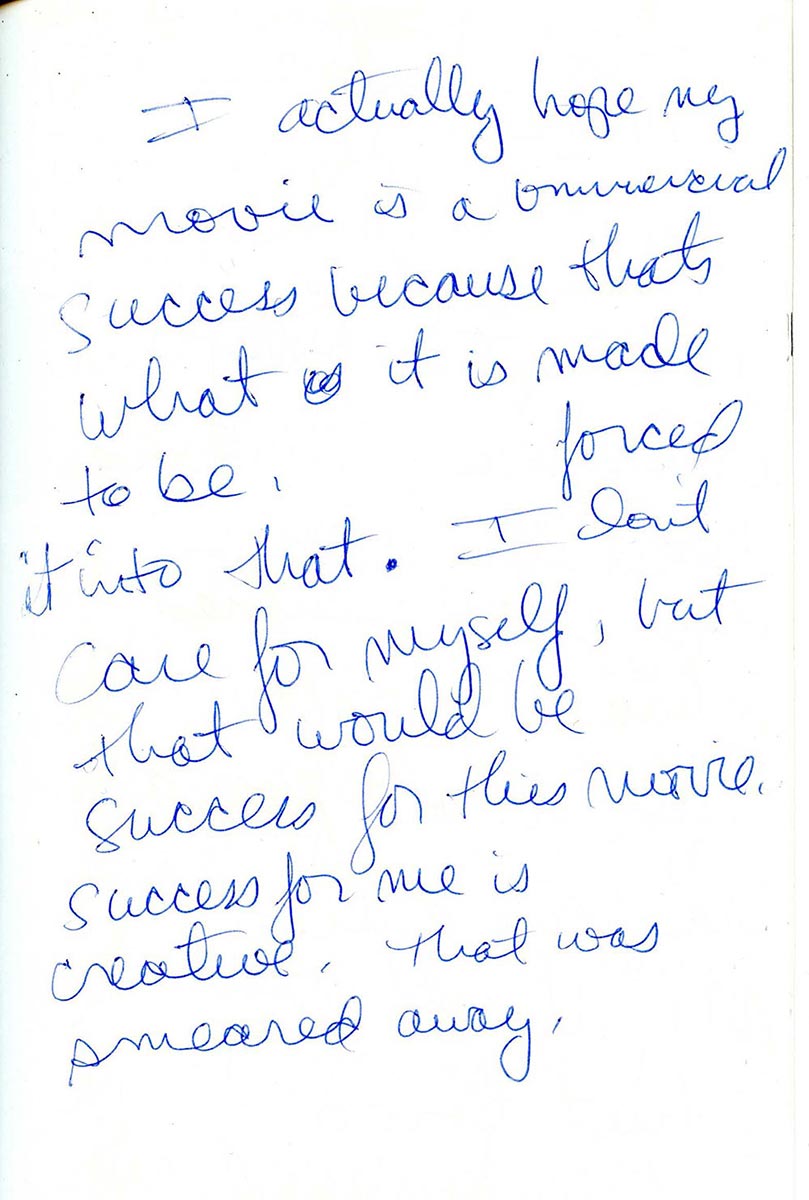 I actually hope my
movie is a commercial
success because thats
what is it is made
to be. forced
it into that. I don't
care for myself, but
that would be
success for this movie.
success for me is
creative. That was
smeared away.